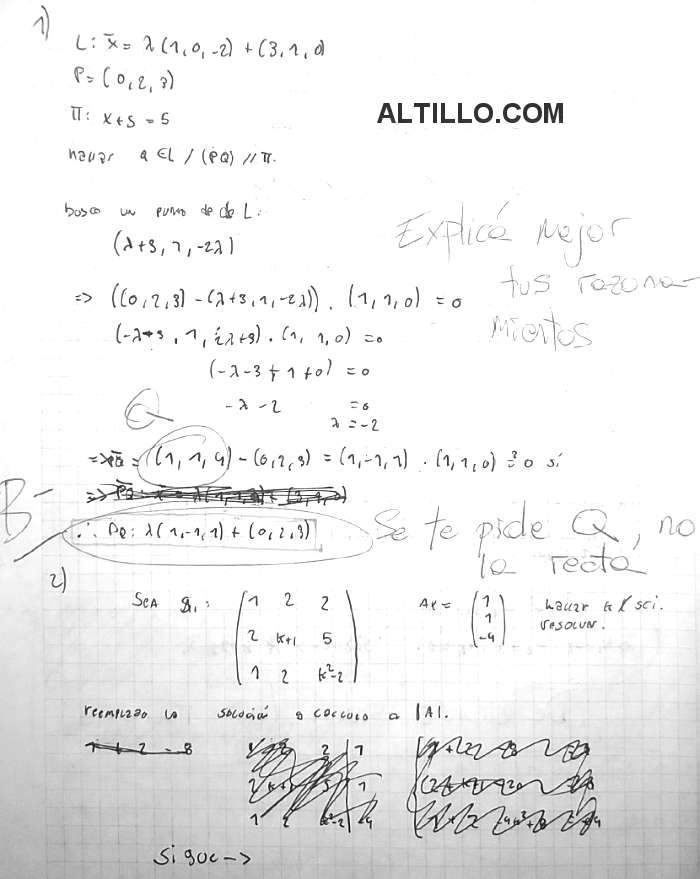 1)
L: x̄ = λ(1,0,-2) + (3,1,0)
P = (0,2,3)
ALTILLO.COM
π: x+y = 5
hallar Q ∈ L / (PQ) // π.
busco un punto de de L:
(λ+3, 1, -2λ)
Explicá mejor
tus razona-
mientos
=> ((0,2,3) - (λ+3,1,-2λ)) . (1,1,0) = 0
(-λ-3, 1, 2λ+3) . (1,1,0) = 0
(-λ-3+1+0) = 0
-λ-2 = 0
λ = -2
Q
=> PQ = (1,1,4) - (0,2,3) = (1,-1,1) . (1,1,0) = 0 sí
B-
∴ PQ: λ(1,-1,1) + (0,2,3)
Se te pide Q, no
la recta
2)
SeA
1 2 2
2 k+1 5
1 2 k²-2
Ax = (1 1 -4)
hallar k / sci.
resolver.
reemplazo la solución o calculo a |A|.
sigue ->